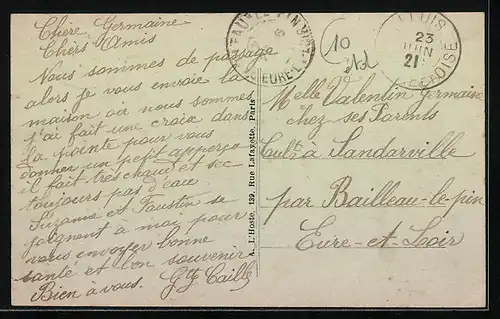 Chère Germaine
Chers Amis
Nous sommes de passage
alors je vous envoie la
maison où nous sommes
j'ai fait une croix dans
la pointe pour vous
donner un petit apperçu
il fait très chaud et sec
toujours pas d'eau
Suzanne et Faustin se
joignent à moi pour
vous envoyer bonne
santé et bon souvenir
Bien à vous. Gtz Caill
A. L'Hoste, 139, Rue Lafayette, Paris
EURE-
10
LLUIS
23
JUIN
21
Melle Valentin Germaine
chez ses Parents
Cult. à Sandarville
par Bailleau-le-pin
Eure-et-Loir